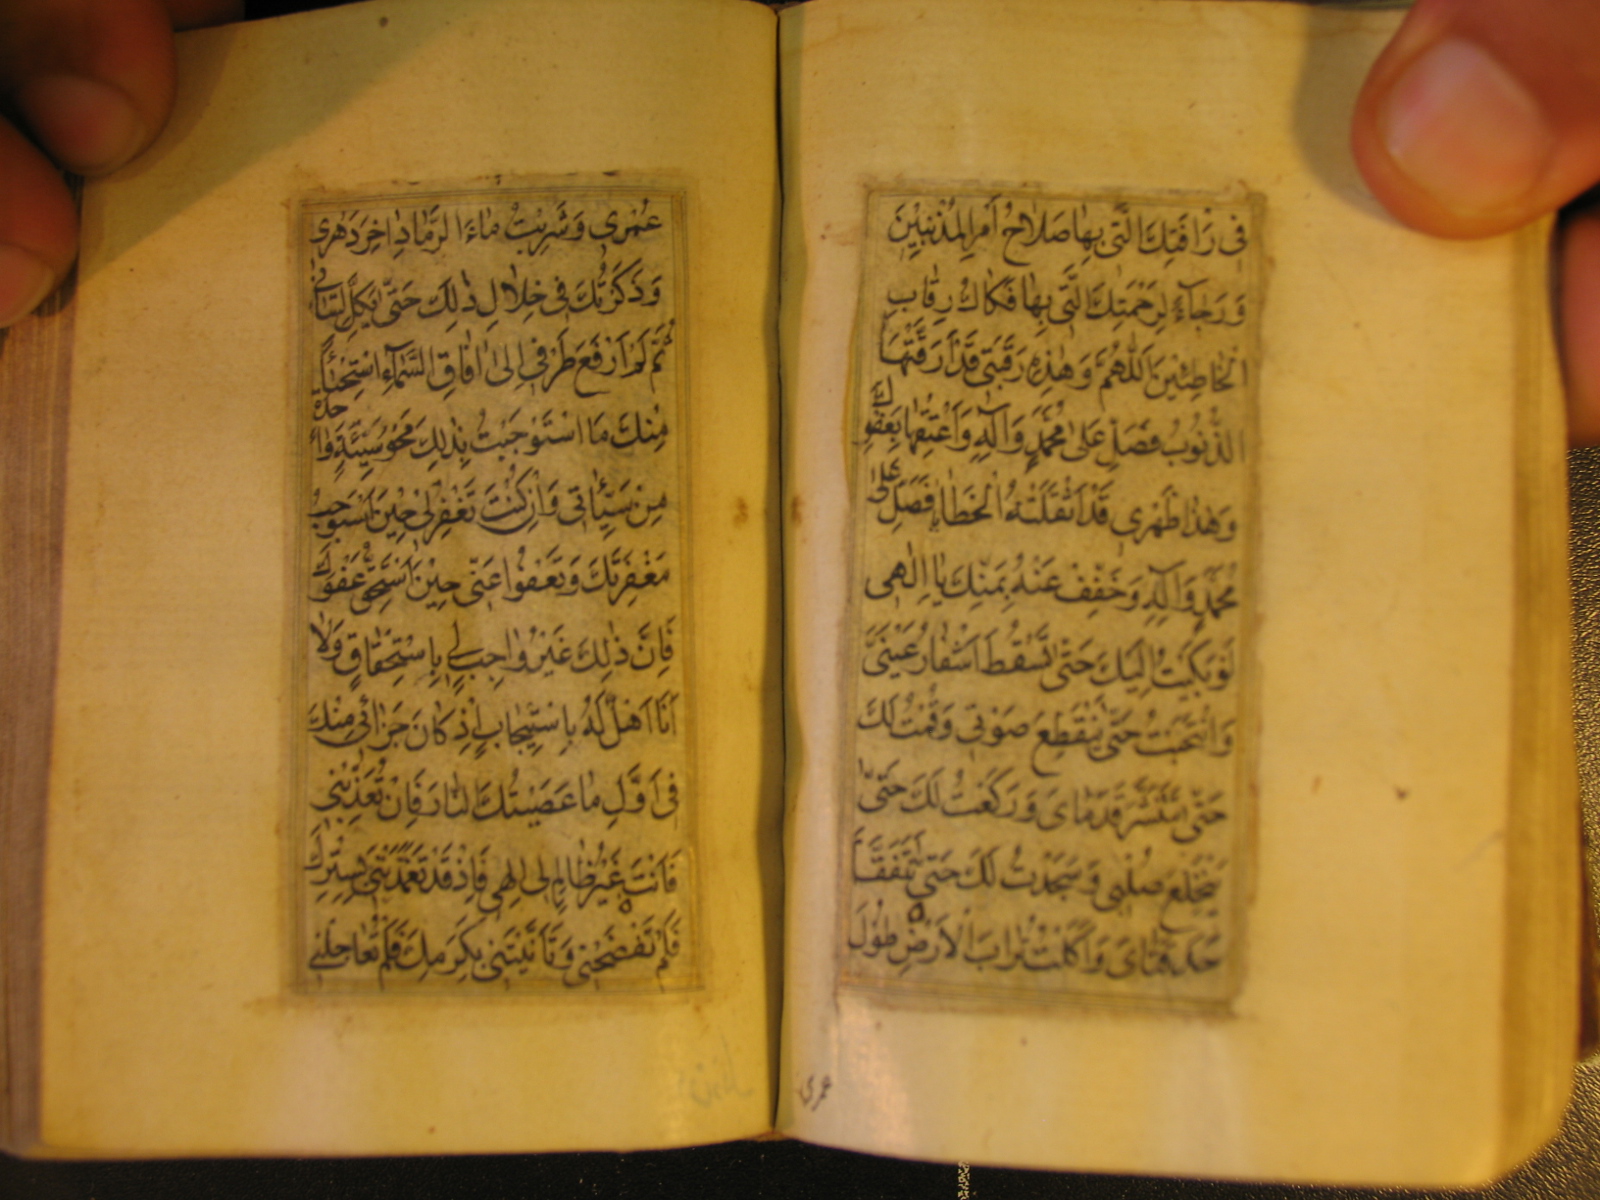 فِی رَافَتِكَ الَّتی بِهٰا صَلاٰحُ اَمْرِ الْمُذْنِبِیْنَ
وَ رَجٰاءً لِرَحْمَتِكَ الَّتی بِهٰا فَكٰاكُ رِقٰابِ
الْخٰاطِئینَ اَللّٰهُمَّ وَ هٰذِهِ رَقَبَتی قَدْ اَرَقَّتْهَا
الذُّنُوبُ فَصَلِّ عَلیٰ مُحَمَّدٍ وَ اٰلِهِ وَ اَعْتِقْهٰا بِعَفْوِكَ
وَ هٰذٰا ظَهْری قَدْ اَثْقَلَتْهُ الْخَطٰایٰا فَصَلِّ عَلیٰ
مُحَمَّدٍ وَ اٰلِهِ وَ خَفِّفْ عَنْهُ بِمَنِّكَ یٰا اِلٰهی
لَوْ بَكَیْتُ اِلَیْكَ حَتّیٰ تَسْقُطَ اَشْفٰارُ عَیْنَیَّ
وَ انْتَحَبْتُ حَتّیٰ یَنْقَطِعَ صَوْتی وَ قُمْتُ لَكَ
حَتّیٰ تَتَنَشَّرَ قَدَمٰایَ وَ رَكَعْتُ لَكَ حَتّیٰ
یَنْخَلِعَ صُلْبی وَ سَجَدْتُ لَكَ حَتّیٰ تَتَفَقَّأَ
حَدَقَتٰایَ وَ اَكَلْتُ تُرٰابَ الْاَرْضِ طُولَ
عمری
عُمْری وَ شَرِبْتُ مٰاءَ الرَّمٰادِ اٰخِرَ دَهْری
وَ ذَكَرْتُكَ فی خِلاٰلِ ذٰلِكَ حَتّیٰ یَكِلَّ لِسٰانی
ثُمَّ لَمْ اَرْفَعْ طَرْفی اِلیٰ اٰفٰاقِ السَّمٰاءِ اسْتِحْیٰاءً
مِنْكَ مَا اسْتَوْجَبْتُ بِذٰلِكَ مَحْوَ سَیِّئَةٍ وٰاحِدَةٍ
مِنْ سَیِّئٰاتی وَ اِنْ كُنْتَ تَغْفِرُ لی حینَ اَسْتَوْجِبُ
مَغْفِرَتَكَ وَ تَعْفُوا عَنّی حینَ اَسْتَحِقُّ عَفْوَكَ
فَاِنَّ ذٰلِكَ غَیْرُ وٰاجِبٍ لی بِاسْتِحْقٰاقٍ وَ لاٰ
اَنَا اَهْلٌ لَهُ بِاسْتیجٰابٍ اِذْ كٰانَ جَزٰائی مِنْكَ
فی اَوَّلِ مٰا عَصَیْتُكَ النّٰارَ فَاِنْ تُعَذِّبْنی
فَاَنْتَ غَیْرُ ظٰالِمٍ لی اِلٰهی فَاِذْ قَدْ تَغَمَّدْتَنی بِسِتْرِكَ
فَلَمْ تَفْضَحْنی وَ تَاَنَّیْتَنی بِكَرَمِكَ فَلَمْ تُعٰاجِلْنی